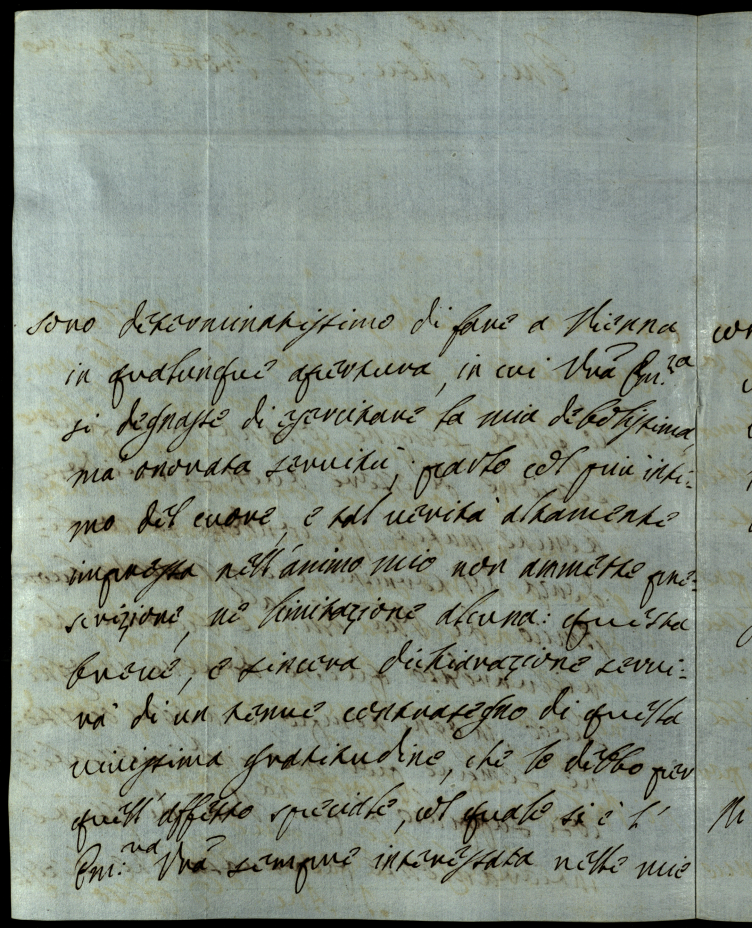 sono determinatissimo di fare a Vienna
in qualunque apertura, in cui Vrã Em:za
si degnasse di esercitare la mia debolissima,
ma onorata servitù; parlo col più inti:
mo del cuore, e tal verità altamente
impressa nell'animo mio non ammette pre:
scrizione, nè limitazione alcuna: questa
breve, e sincera dichiarazione servi:
rà di un tenue contrasegno di quella
vivissima gratitudine, che le debbo per
quell'affetto speciale, col quale si è l'
Em:za Vrã sempre interessata nelle mie